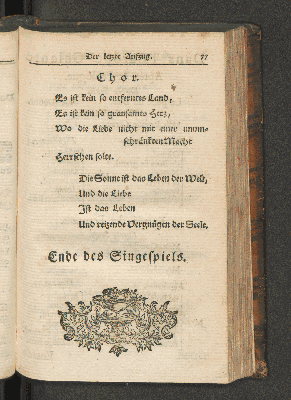 Der letzte Aufzug. 77
Chor.
Es ist kein so entferntes Land,
Es ist kein so grausames Herz,
Wo die Liebe nicht mit einer unum-
schränkten Macht
Herrschen solte.
Die Sonne ist das Leben der Welt,
Und die Liebe
Ist das Leben
Und reizende Vergnügen der Seele.
Ende des Singespiels.